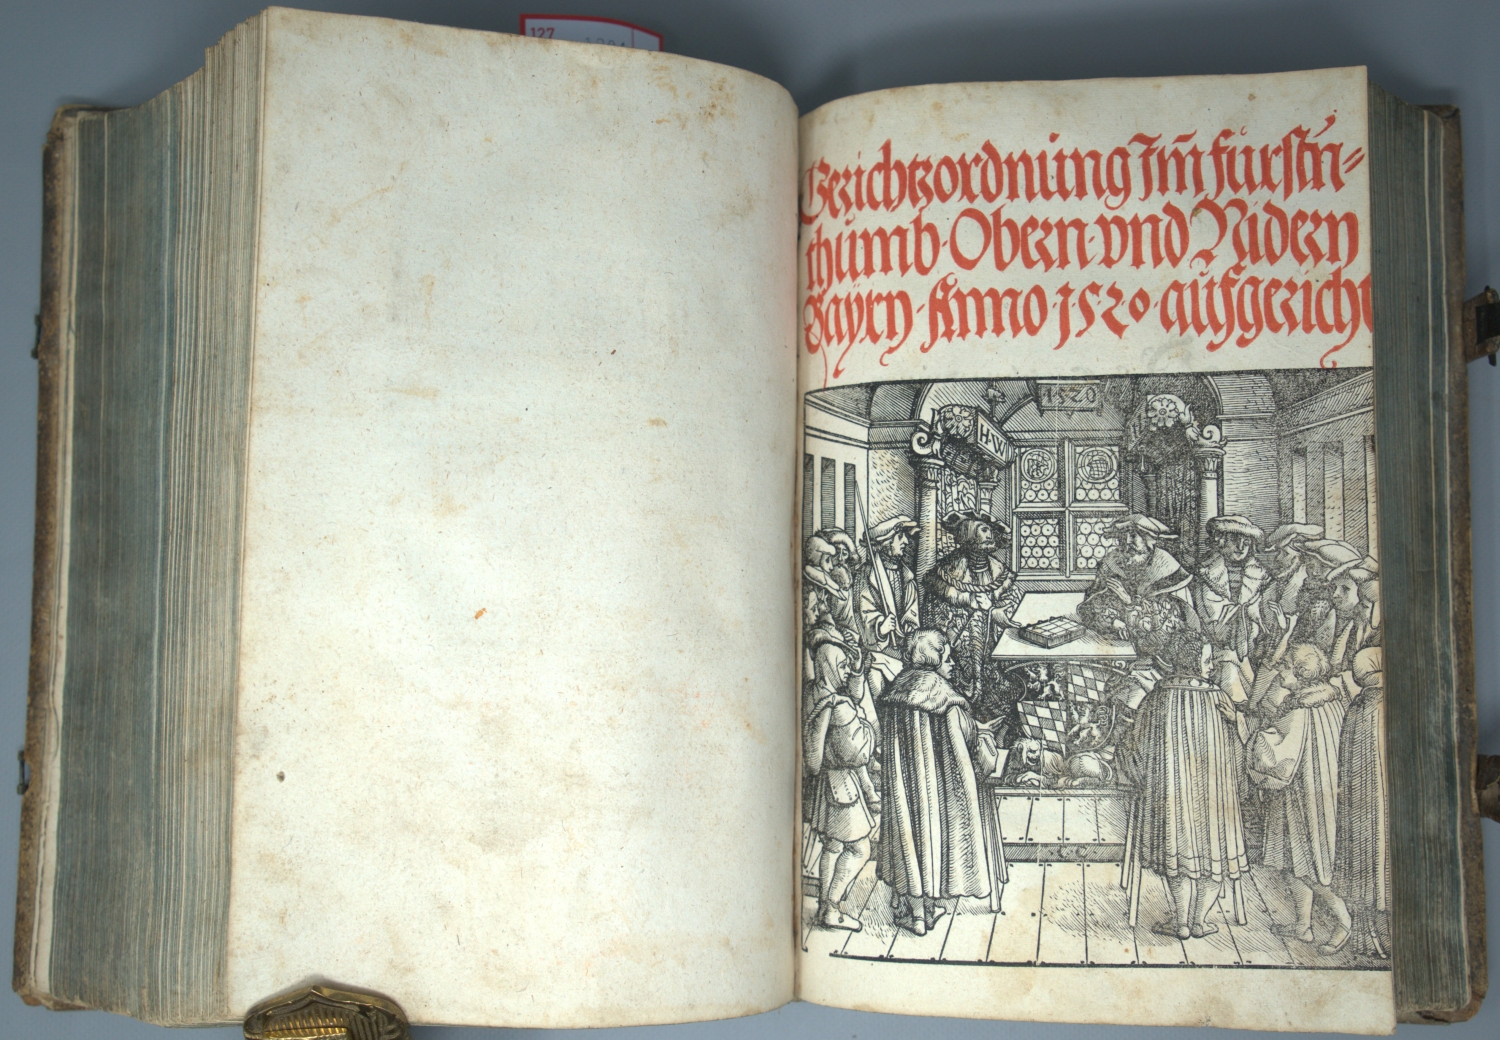 127
Gerichtzordnung Im̃ fürstn̄-
thumb·Obern·vnd Nidern
Bayrn·Anno 1520·aufgericht
1520
H·W